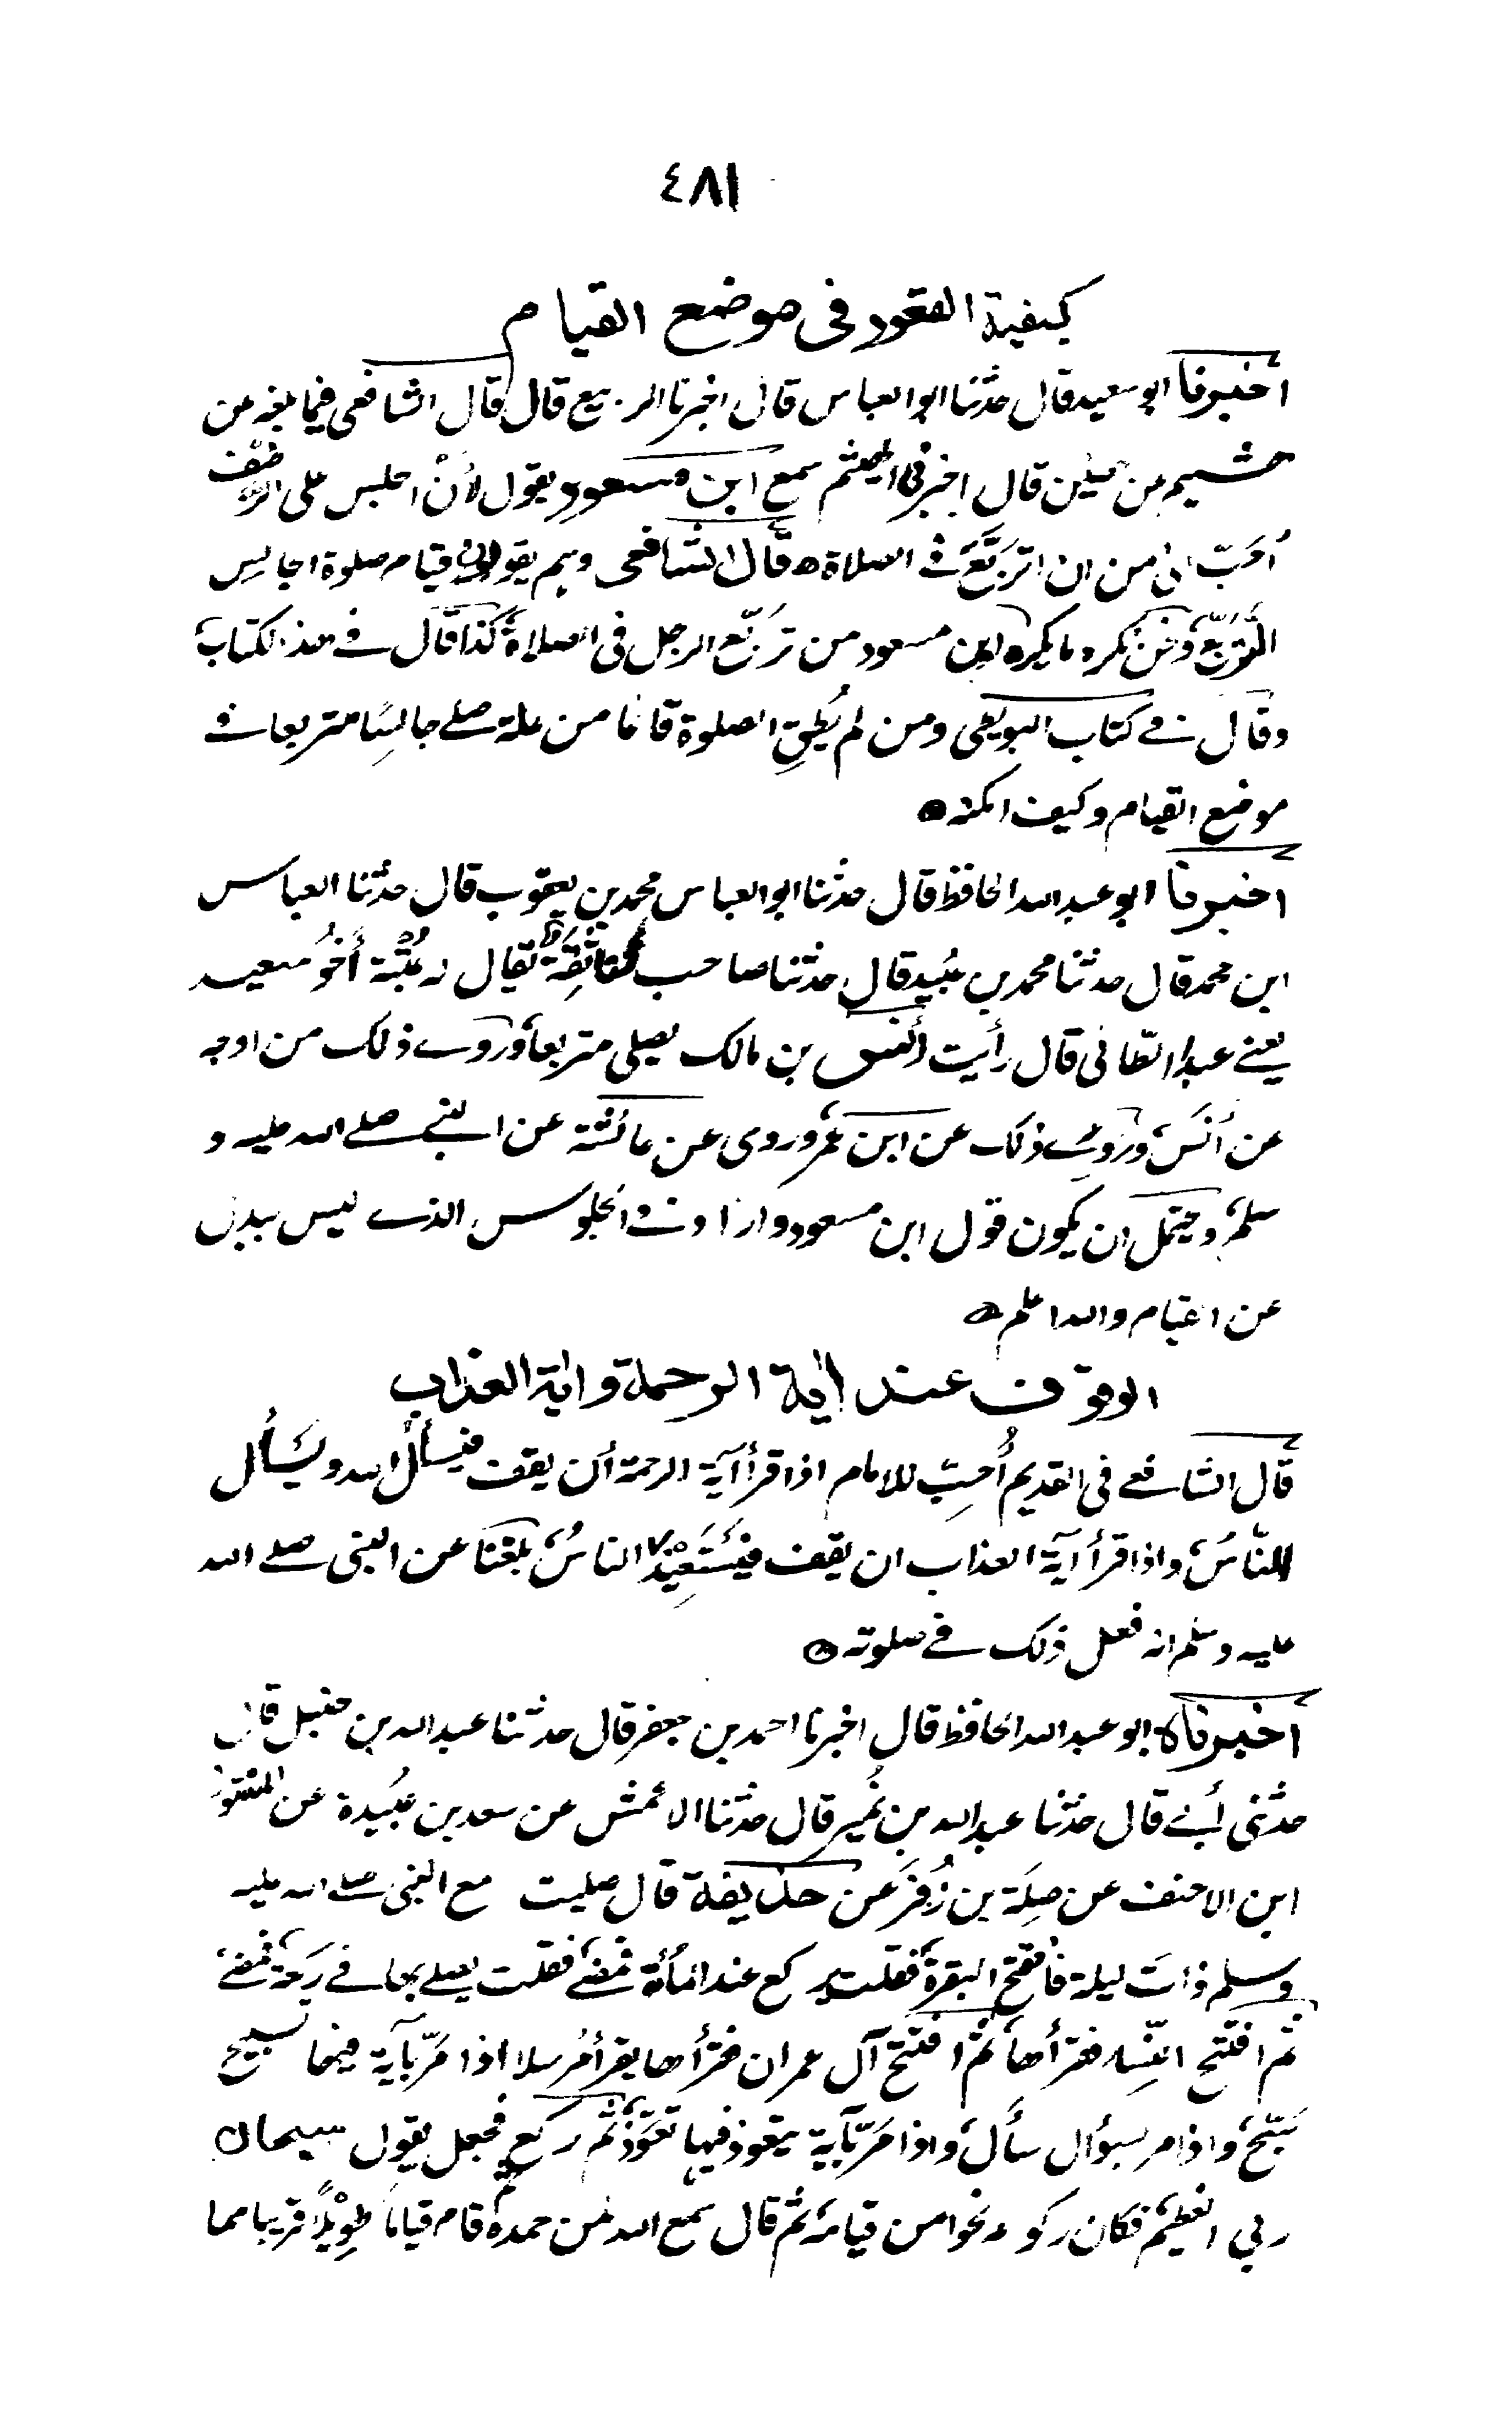 ٤٨١
كيفية القعود في موضع القيام
اخبرنا ابو سعيد قال حدثنا ابو العباس قال اخبرنا الربيع قال قال الشافعي فيما بلغه عن
هشيم عن حصين قال اخبرني الهيثم سمع ابن مسعود يقول لأنْ اجلس على الرضف
أحَبّ الي من ان اتربَّعَ في الصلاة ه قال الشافعي وهم يقولون قيام صلوة الجالس
التَّرَبّع ونحن نكره ما يكره ابن مسعود من تربّع الرجل في الصلاة كذا قال في هذ الكتاب
وقال في كتاب البويطي ومن لم يُطِقِ الصلوة قائما من علة صلى جالسًا متربعا في
موضع القيام وكيف امكنه ه
اخبرنا ابو عبد الله الحافظ قال حدثنا ابو العباس محمد بن يعقوب قال حدثنا العباس
ابن محمد قال حدثنا محمد بن عُبيد قال حدثنا صاحب ثِقَة يقال له عُقْبة أخُو سعيد
يعني عبيد الطائي قال رأيت أنس بن مالك يصلي متربعا وروي ذلك من اوجه
عن أنَس وروي ذلك عن ابن عمر وروي عن عائشة عن النبي صلى الله عليه و
سلم ويحتمل ان يكون قول ابن مسعود وارد ا في الجلوس الذي ليس ببدل
عن القيام والله اعلم ه
الوقوف عند اية الرحمة واية العذاب
قال الشافعي في القديم أُحِبّ للامام اذا قرأ آية الرحمة أن يقف فيسأل الله ويَسْأل
النّاسُ واذا قرأ آية العذاب ان يقف فيَسْتَعِيْذ الناسُ بلغنا عن النبي صلى الله
عليه وسلم انه فعل ذلك في صلوته ه
اخبرناه ابو عبد الله الحافظ قال اخبرنا احمد بن جعفر قال حدثنا عبد الله بن حنبل قال
حدثني أبي قال حدثنا عبد الله بن نُمير قال حدثنا الاعمش عن سعد بن عُبَيدة عن المستورد
ابن الاحنف عن صِلَة بن زُفَرَ عن حذيفة قال صليت مع النبي صلى الله عليه
وسلم ذاتَ ليلة فافتتح البقرة فقلت يركع عند المأة فمضى فقلت يصلي بها في ركعة فمضى
ثم افتتح النساء فقرأها ثم افتتح آل عمران فقرأها يقرأ مُرسلا اذا مَرّ بآية فيها تسبيح
سَبّحَ واذا مر بسؤال سأل واذا مَرّ بآية يتعوذ فيها تعوّذ ثم ركع فجعل يقول سبحان
ربي العظيم فكان ركوعه نحوا من قيامه ثم قال سمع الله لمن حمده ثم قام قياما طويلاً قريبا مما